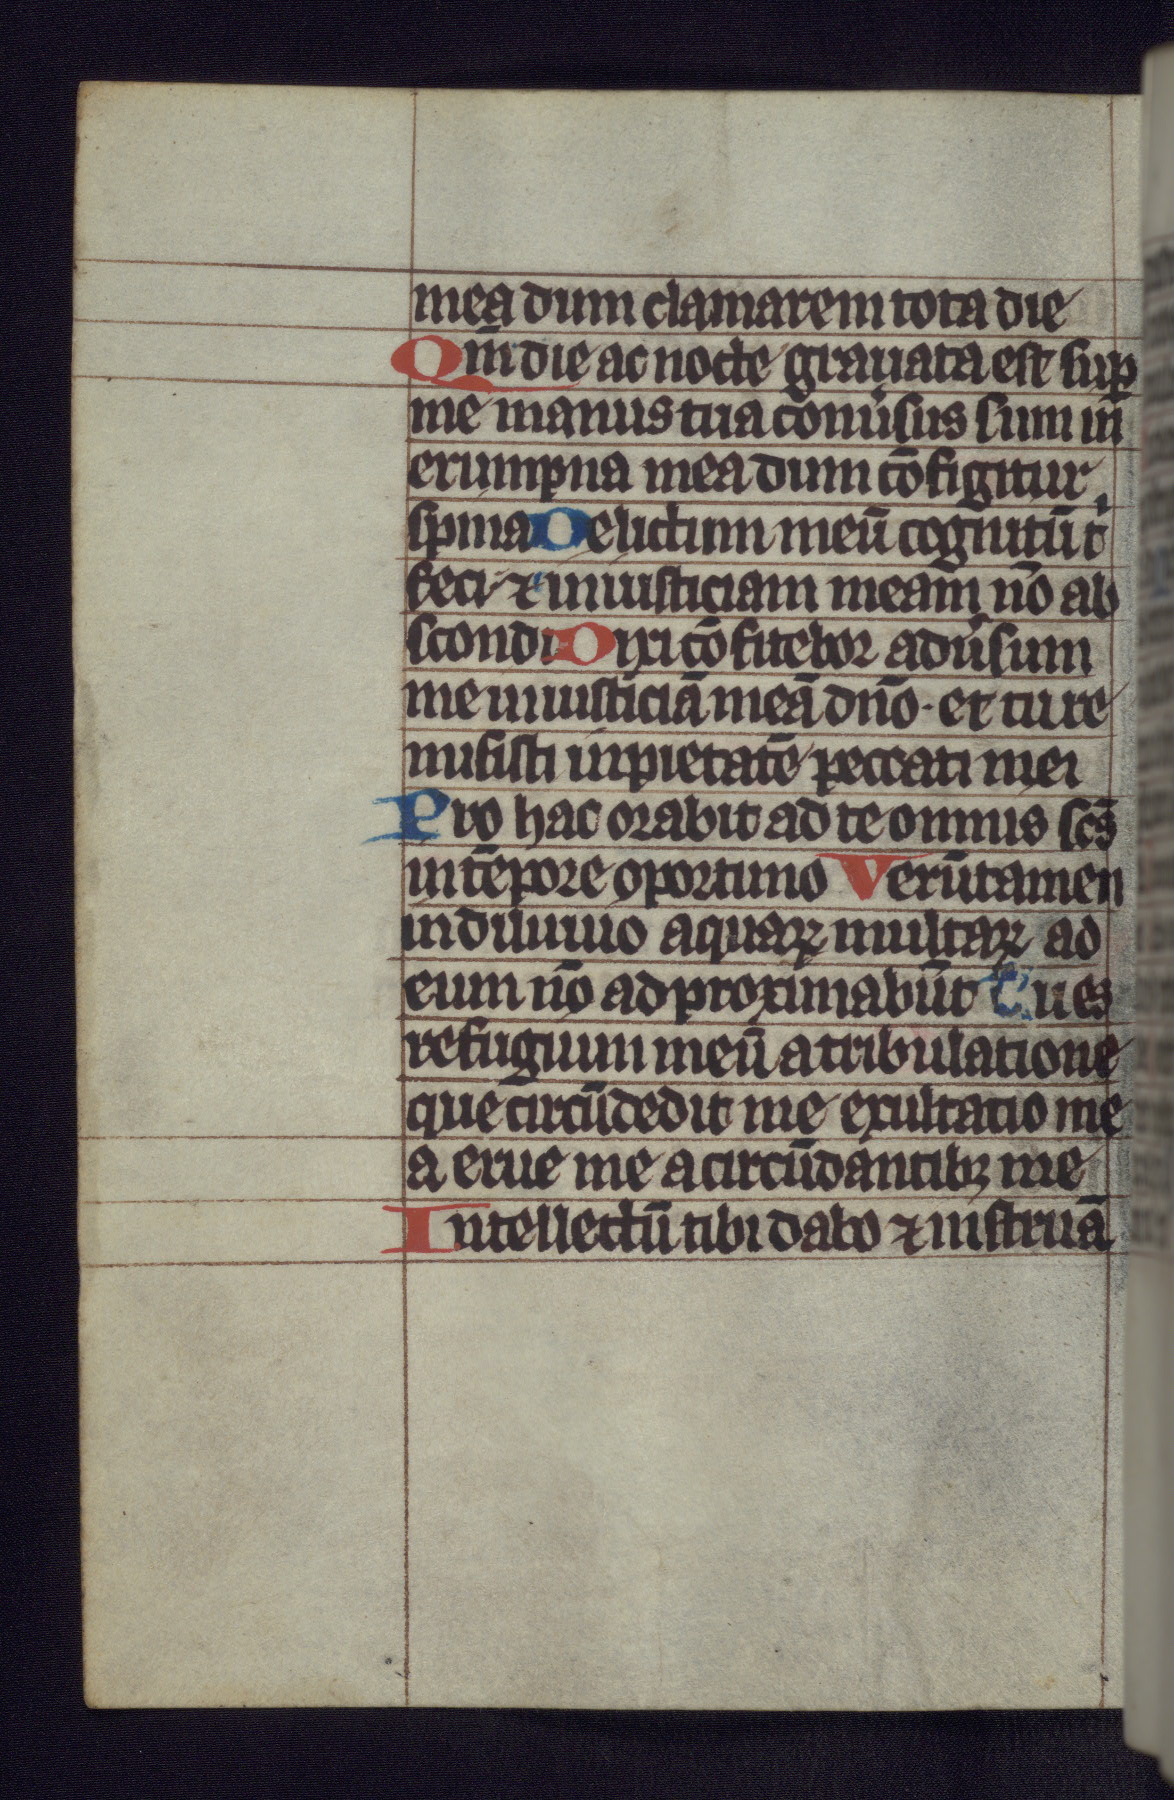 mea dum clamarem tota die
Qm̄ die ac nocte grauata est sup
me manus tua conuersus sum in
erumpna mea dum cōfigitur
spina Delictum meū cognitū t
feci ⁊ iniusticiam meam nō ab
scondi Dixi cōfitebor aduersum
me iniusticiā meā dn̄o · et tu re
misisti inpietatē peccati mei
Pro hac orabit ad te omnis sc̄s
in tēpore oportuno Verūtamen
in diluuio aquaꝝ multaꝝ ad
eum nō adproximabūt Tu es
refugium meū a tribulatione
que circūdedit me exultatio me
a erue me a circūdantibꝫ me
Intellectū tibi dabo ⁊ instruā